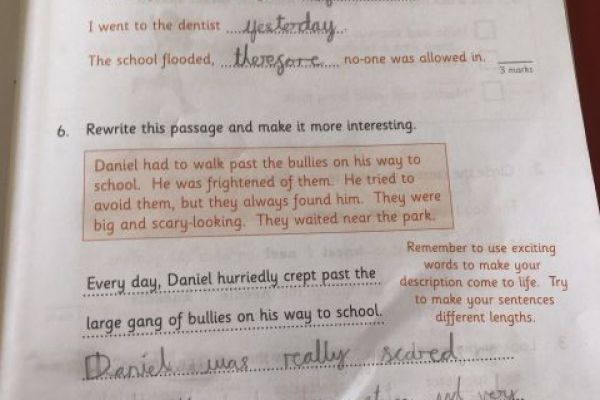 I went to the dentist yesterday.
The school flooded, therefore no-one was allowed in.
3 marks
6. Rewrite this passage and make it more interesting.
Daniel had to walk past the bullies on his way to
school. He was frightened of them. He tried to
avoid them, but they always found him. They were
big and scary-looking. They waited near the park.
Remember to use exciting
words to make your
description come to life. Try
to make your sentences
different lengths.
Every day, Daniel hurriedly crept past the
large gang of bullies on his way to school.
Daniel was really scared
and very